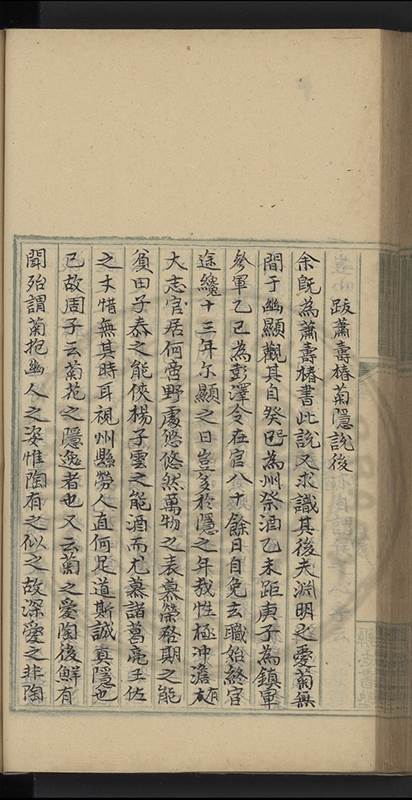 跋蕭壽椿菊隱說後
余既為蕭壽椿書此說又求識其後夫淵明之愛菊無
間于幽顯觀其自癸巳為州祭酒乙未距庚子為鎮軍
參軍乙巳為彭澤令在官八十餘日自免去職始終官
途纔十三年尔顯之日豈多於隱之年哉性極冲澹
大志官居何啻野處悠悠然萬物之表慕榮啓期之能
貧田子泰之能俠楊子雲之能酒而尤慕諸葛亮王佐
之才惜無其時耳視州縣勞人直何足道斯誠真隱也
已故周子云菊花之隱逸者也又云菊之愛陶後鮮有
聞殆謂菊抱幽人之姿惟陶有之似之故深愛之非陶